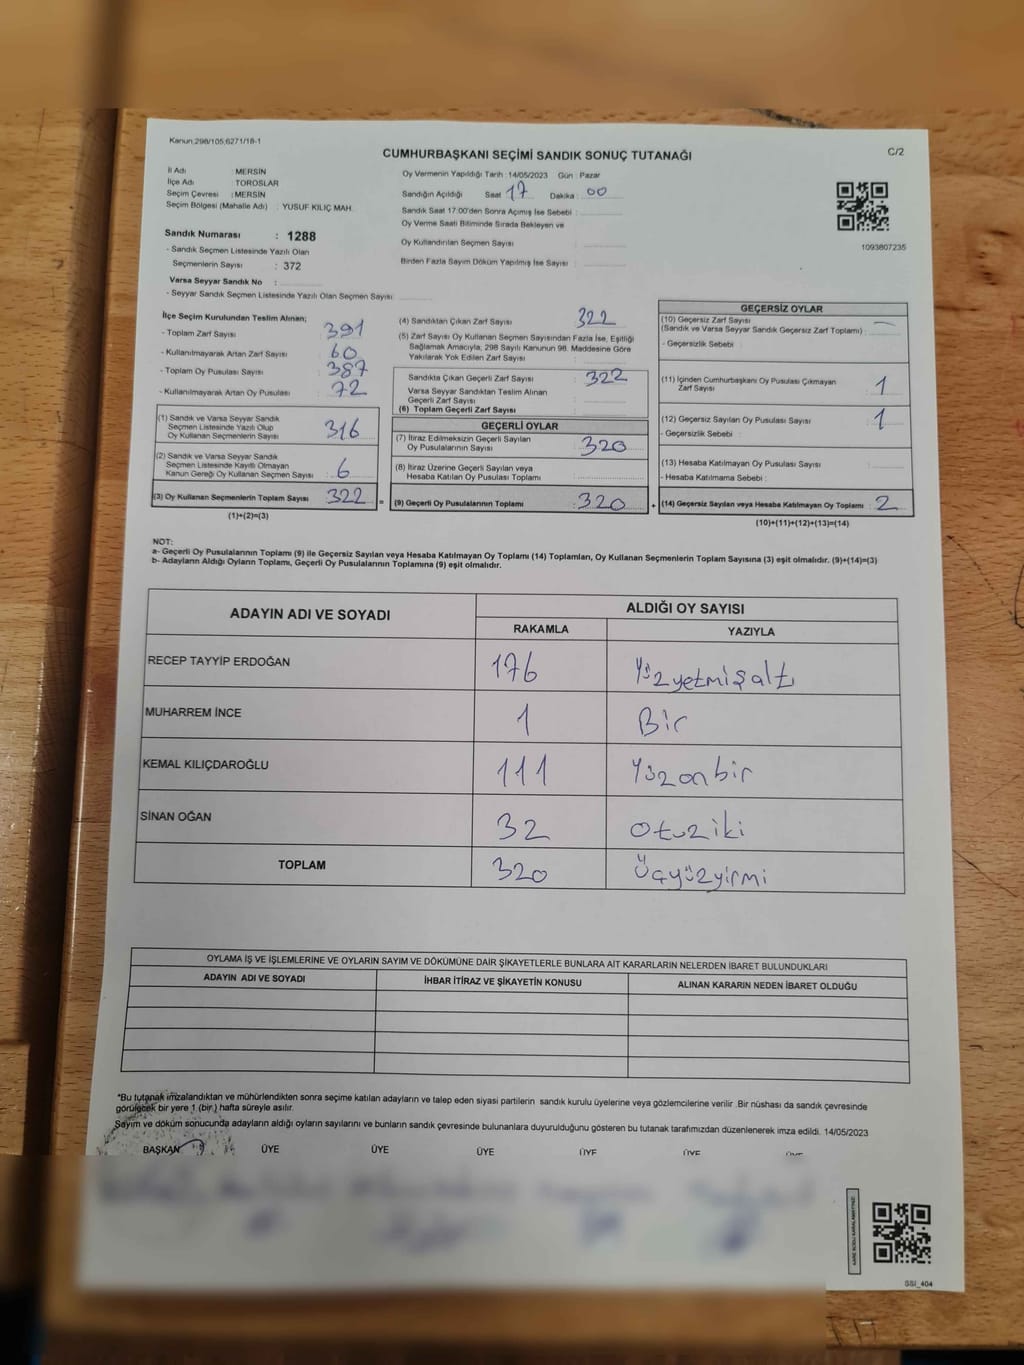 Kanun:298/105;6271/18-1
C/2
CUMHURBAŞKANI SEÇİMİ SANDIK SONUÇ TUTANAĞI
İl Adı : MERSİN
İlçe Adı : TOROSLAR
Seçim Çevresi : MERSİN
Seçim Bölgesi (Mahalle Adı) : YUSUF KILIÇ MAH.
Sandık Numarası : 1288
- Sandık Seçmen Listesinde Yazılı Olan
Seçmenlerin Sayısı : 372
Varsa Seyyar Sandık No :
- Seyyar Sandık Seçmen Listesinde Yazılı Olan Seçmen Sayısı
Oy Vermenin Yapıldığı Tarih : 14/05/2023 Gün : Pazar
Sandığın Açıldığı Saat 17 Dakika : 00
Sandık Saat 17:00'den Sonra Açımış İse Sebebi :
Oy Verme Saati Bitiminde Sırada Bekleyen ve
Oy Kullandırılan Seçmen Sayısı :
Birden Fazla Sayım Döküm Yapılmış İse Sayısı :
1093807235
İlçe Seçim Kurulundan Teslim Alınan;
- Toplam Zarf Sayısı : 391
- Kullanılmayarak Artan Zarf Sayısı : 60
- Toplam Oy Pusulası Sayısı : 387
- Kullanılmayarak Artan Oy Pusulası : 72
(1) Sandık ve Varsa Seyyar Sandık
Seçmen Listesinde Yazılı Olup
Oy Kullanan Seçmenlerin Sayısı 316
(2) Sandık ve Varsa Seyyar Sandık
Seçmen Listesinde Kayıtlı Olmayan
Kanun Gereği Oy Kullanan Seçmen Sayısı : 6
(3) Oy Kullanan Seçmenlerin Toplam Sayısı : 322 =
(1)+(2)=(3)
(4) Sandıktan Çıkan Zarf Sayısı : 322
(5) Zarf Sayısı Oy Kullanan Seçmen Sayısından Fazla İse, Eşitliği
Sağlamak Amacıyla, 298 Sayılı Kanunun 98. Maddesine Göre
Yakılarak Yok Edilen Zarf Sayısı :
Sandıkta Çıkan Geçerli Zarf Sayısı : 322
Varsa Seyyar Sandıktan Teslim Alınan
Geçerli Zarf Sayısı :
(6) Toplam Geçerli Zarf Sayısı :
GEÇERLİ OYLAR
(7) İtiraz Edilmeksizin Geçerli Sayılan
Oy Pusulalarının Sayısı : 320
(8) İtiraz Üzerine Geçerli Sayılan veya
Hesaba Katılan Oy Pusulası Toplamı :
(9) Geçerli Oy Pusulalarının Toplamı : 320 +
GEÇERSİZ OYLAR
(10) Geçersiz Zarf Sayısı
(Sandık ve Varsa Seyyar Sandık Geçersiz Zarf Toplamı) : —
- Geçersizlik Sebebi :
(11) İçinden Cumhurbaşkanı Oy Pusulası Çıkmayan
Zarf Sayısı : 1
(12) Geçersiz Sayılan Oy Pusulası Sayısı : 1
- Geçersizlik Sebebi :
(13) Hesaba Katılmayan Oy Pusulası Sayısı :
- Hesaba Katılmama Sebebi :
(14) Geçersiz Sayılan veya Hesaba Katılmayan Oy Toplamı : 2
(10)+(11)+(12)+(13)=(14)
NOT:
a- Geçerli Oy Pusulalarının Toplamı (9) ile Geçersiz Sayılan veya Hesaba Katılmayan Oy Toplamı (14) Toplamları, Oy Kullanan Seçmenlerin Toplam Sayısına (3) eşit olmalıdır. (9)+(14)=(3)
b- Adayların Aldığı Oyların Toplamı, Geçerli Oy Pusulalarının Toplamına (9) eşit olmalıdır.
ADAYIN ADI VE SOYADI
ALDIĞI OY SAYISI
RAKAMLA YAZIYLA
RECEP TAYYİP ERDOĞAN 176 Yüzyetmişaltı
MUHARREM İNCE 1 Bir
KEMAL KILIÇDAROĞLU 111 Yüzonbir
SİNAN OĞAN 32 otuziki
TOPLAM 320 Üçyüzyirmi
OYLAMA İŞ VE İŞLEMLERİNE VE OYLARIN SAYIM VE DÖKÜMÜNE DAİR ŞİKAYETLERLE BUNLARA AİT KARARLARIN NELERDEN İBARET BULUNDUKLARI
ADAYIN ADI VE SOYADI İHBAR İTİRAZ VE ŞİKAYETİN KONUSU ALINAN KARARIN NEDEN İBARET OLDUĞU
*Bu tutanak imzalandıktan ve mühürlendikten sonra seçime katılan adayların ve talep eden siyasi partilerin sandık kurulu üyelerine veya gözlemcilerine verilir .Bir nüshası da sandık çevresinde
görülecek bir yere 1 (bir ) hafta süreyle asılır.
Sayım ve döküm sonucunda adayların aldığı oyların sayılarını ve bunların sandık çevresinde bulunanlara duyurulduğunu gösteren bu tutanak tarafımızdan düzenlenerek imza edildi. 14/05/2023
BAŞKAN ÜYE ÜYE ÜYE ÜYE ÜYE
SSİ_404